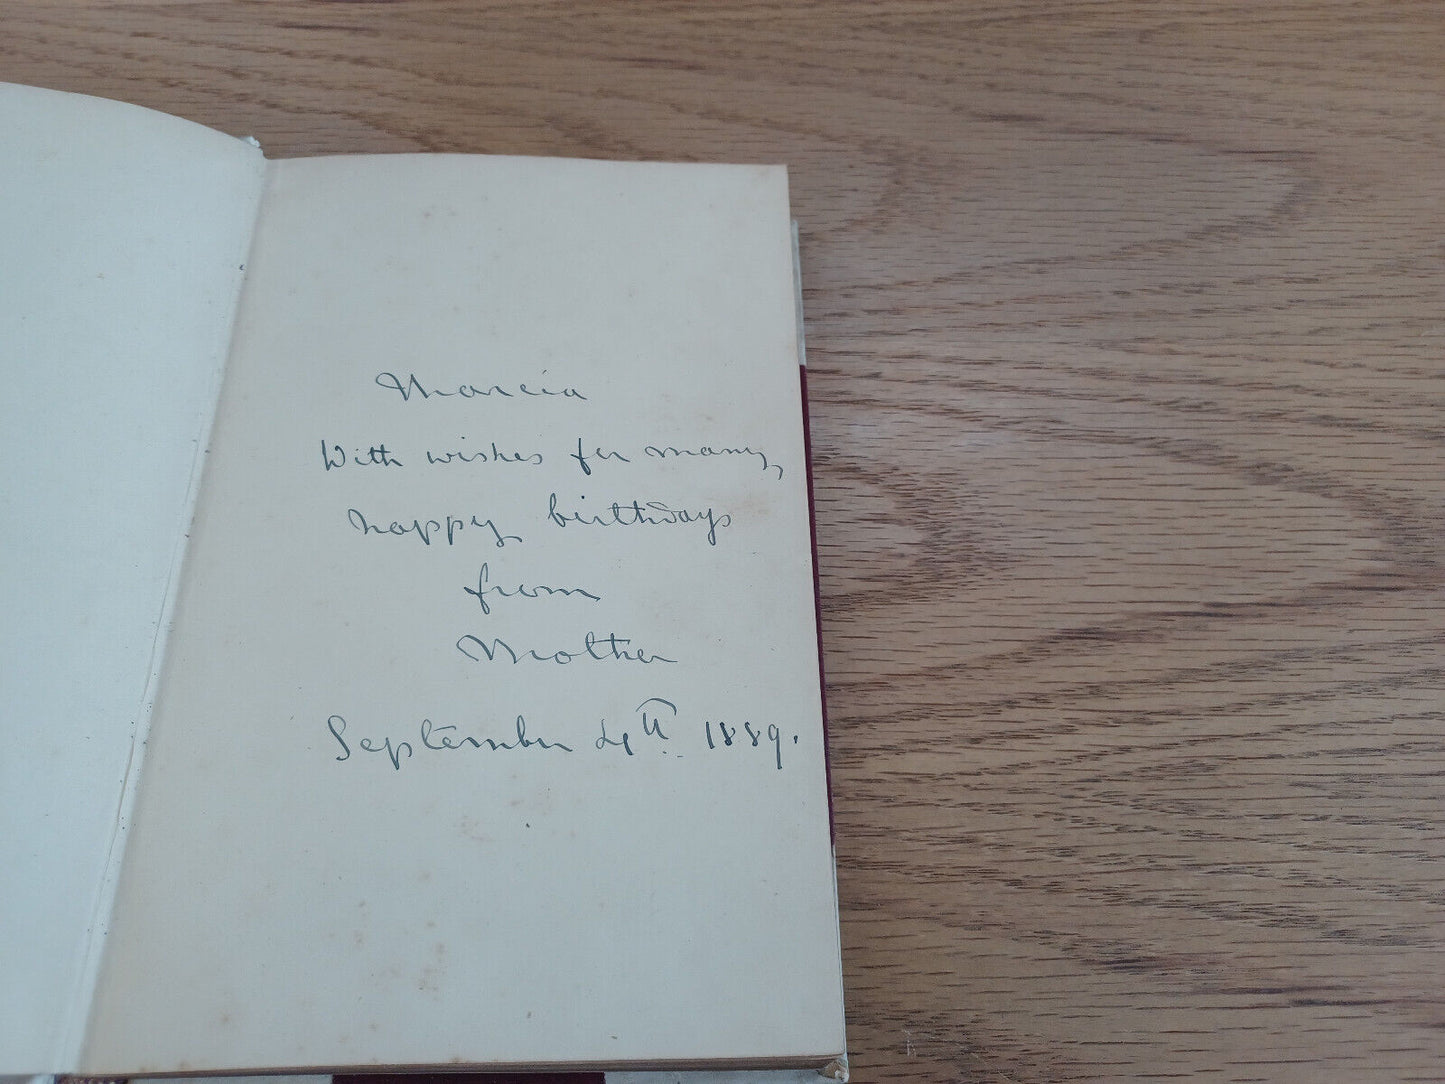 Marcia
With wishes for many,
happy birthdays
from
Mother
September 4th. 1889.